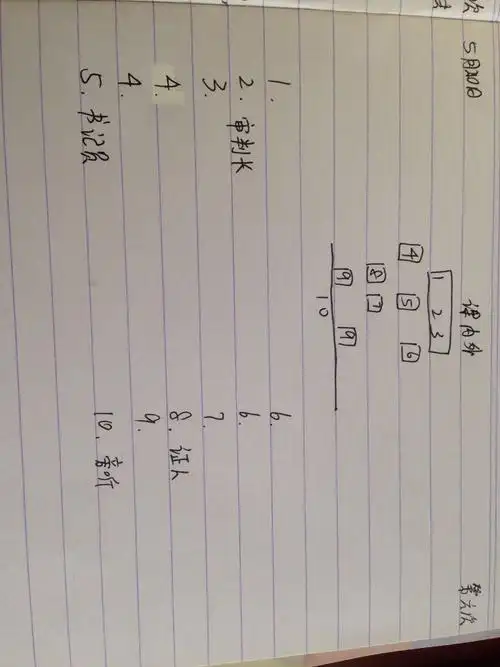 次
课内外 第六次
1 2 3
4 5 6
8 7
9 9
10
1.
2. 审判长
3.
4.
4.
5. 书记员
6.
6.
7.
8. 证人
9.
10. 旁听